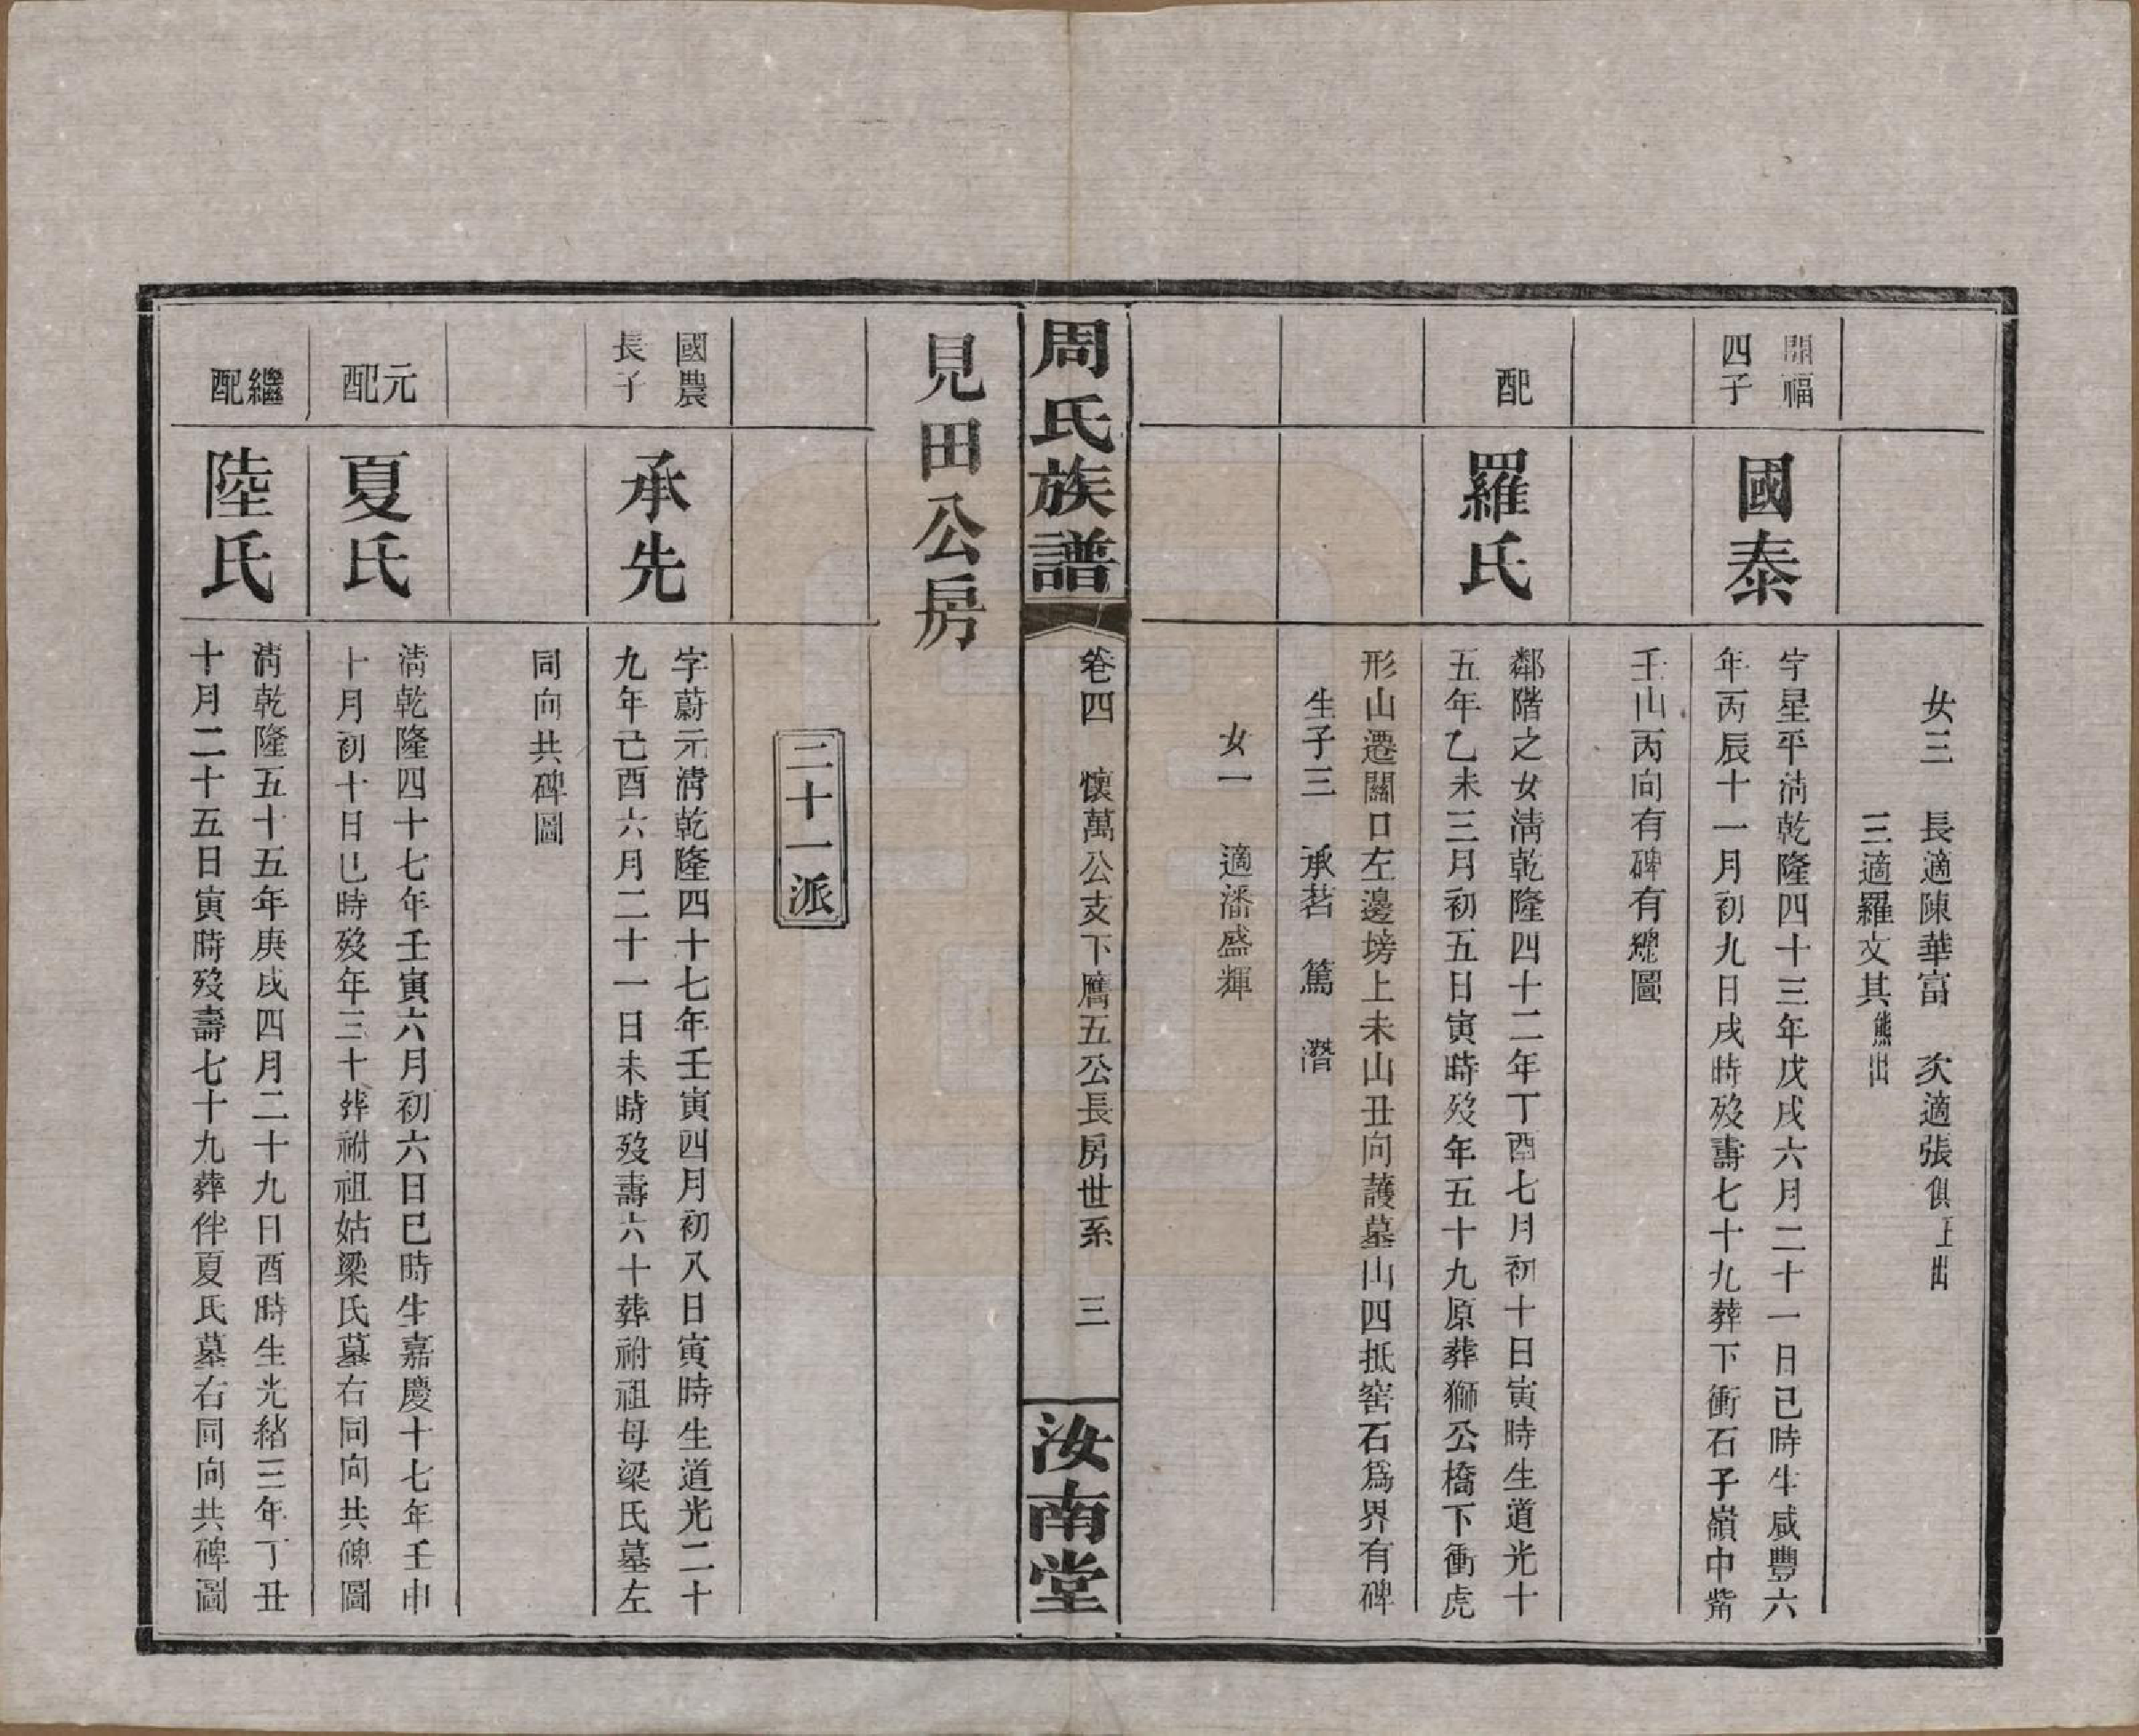 女三 長適陳華富 次適張俱王出
三適羅文其熊出
開福
四子
國泰
字星平淸乾隆四十三年戊戌六月二十一日巳時生咸豐六
年丙辰十一月初九日戌時歿壽七十九葬下衝石子嶺中嘴
壬山丙向有碑有總圖
配
羅氏
鄰階之女淸乾隆四十二年丁酉七月初十日寅時生道光十
五年乙未三月初五日寅時歿年五十九原葬獅公橋下衝虎
形山遷關口左邊塝上未山丑向護墓山四抵窖石爲界有碑
生子三 承茗 篤 潛
女一 適潘盛輝
周氏族譜
卷四 懷萬公支下膺五公長房世系 三
汝南堂
見田公房
二十一派
國農
長子
承先
字蔚元淸乾隆四十七年壬寅四月初八日寅時生道光二十
九年己酉六月二十一日未時歿壽六十葬祔祖母梁氏墓左
同向共碑圖
元
配
夏氏
淸乾隆四十七年壬寅六月初六日巳時生嘉慶十七年壬申
十月初十日巳時歿年三十葬祔祖姑梁氏墓右同向共碑圖
繼
配
陸氏
淸乾隆五十五年庚戌四月二十九日酉時生光緒三年丁丑
十月二十五日寅時歿壽七十九葬伴夏氏墓右同向共碑圖